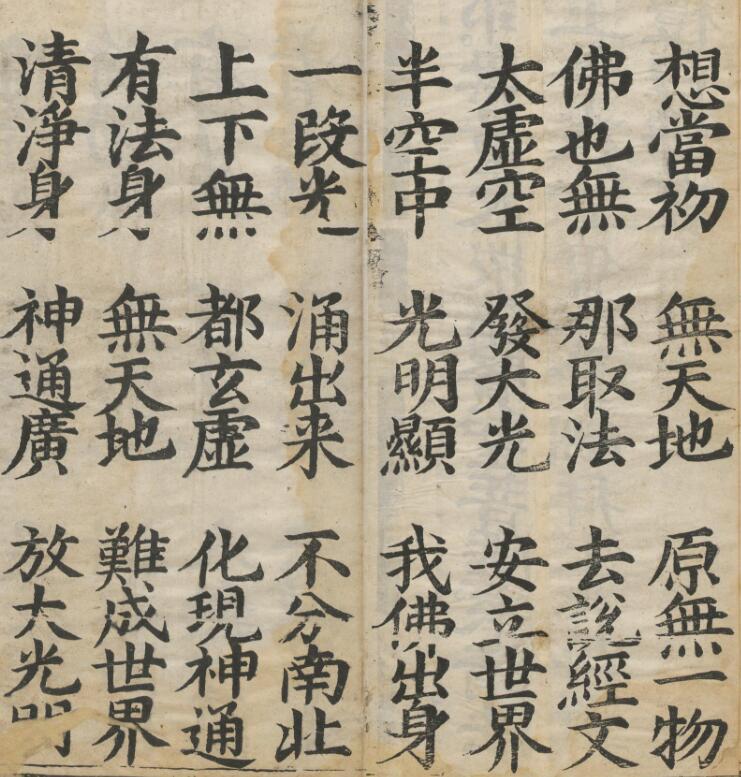 想當初 無天地 原無一物
佛也無 那取法 去說經文
太虛空 發大光 安立世界
半空中 光明顯 我佛出身
一段光 涌出来 不分南北
上下無 都玄虛 化現神通
有法身 無天地 難成世界
清淨身 神通廣 放大光明